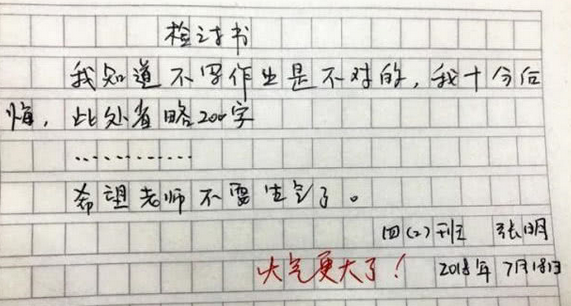 检讨书
我知道不写作业是不对的，我十分后
悔，此处省略200字
…………
希望老师不要生气了。
四(2)班 张明
火气更大了！ 2018年7月18日